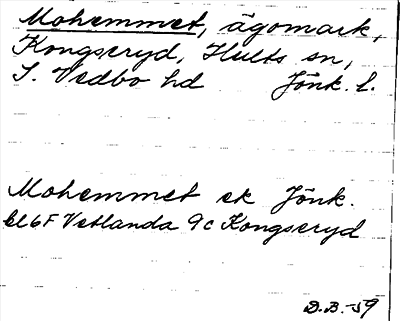 Mohemmet, ägomark,
Kongseryd, Hults sn,
S. Vedbo hd Jönk. l.
Mohemmet ek Jönk.
bl 6F Vetlanda 9c Kongseryd
D.B. -59